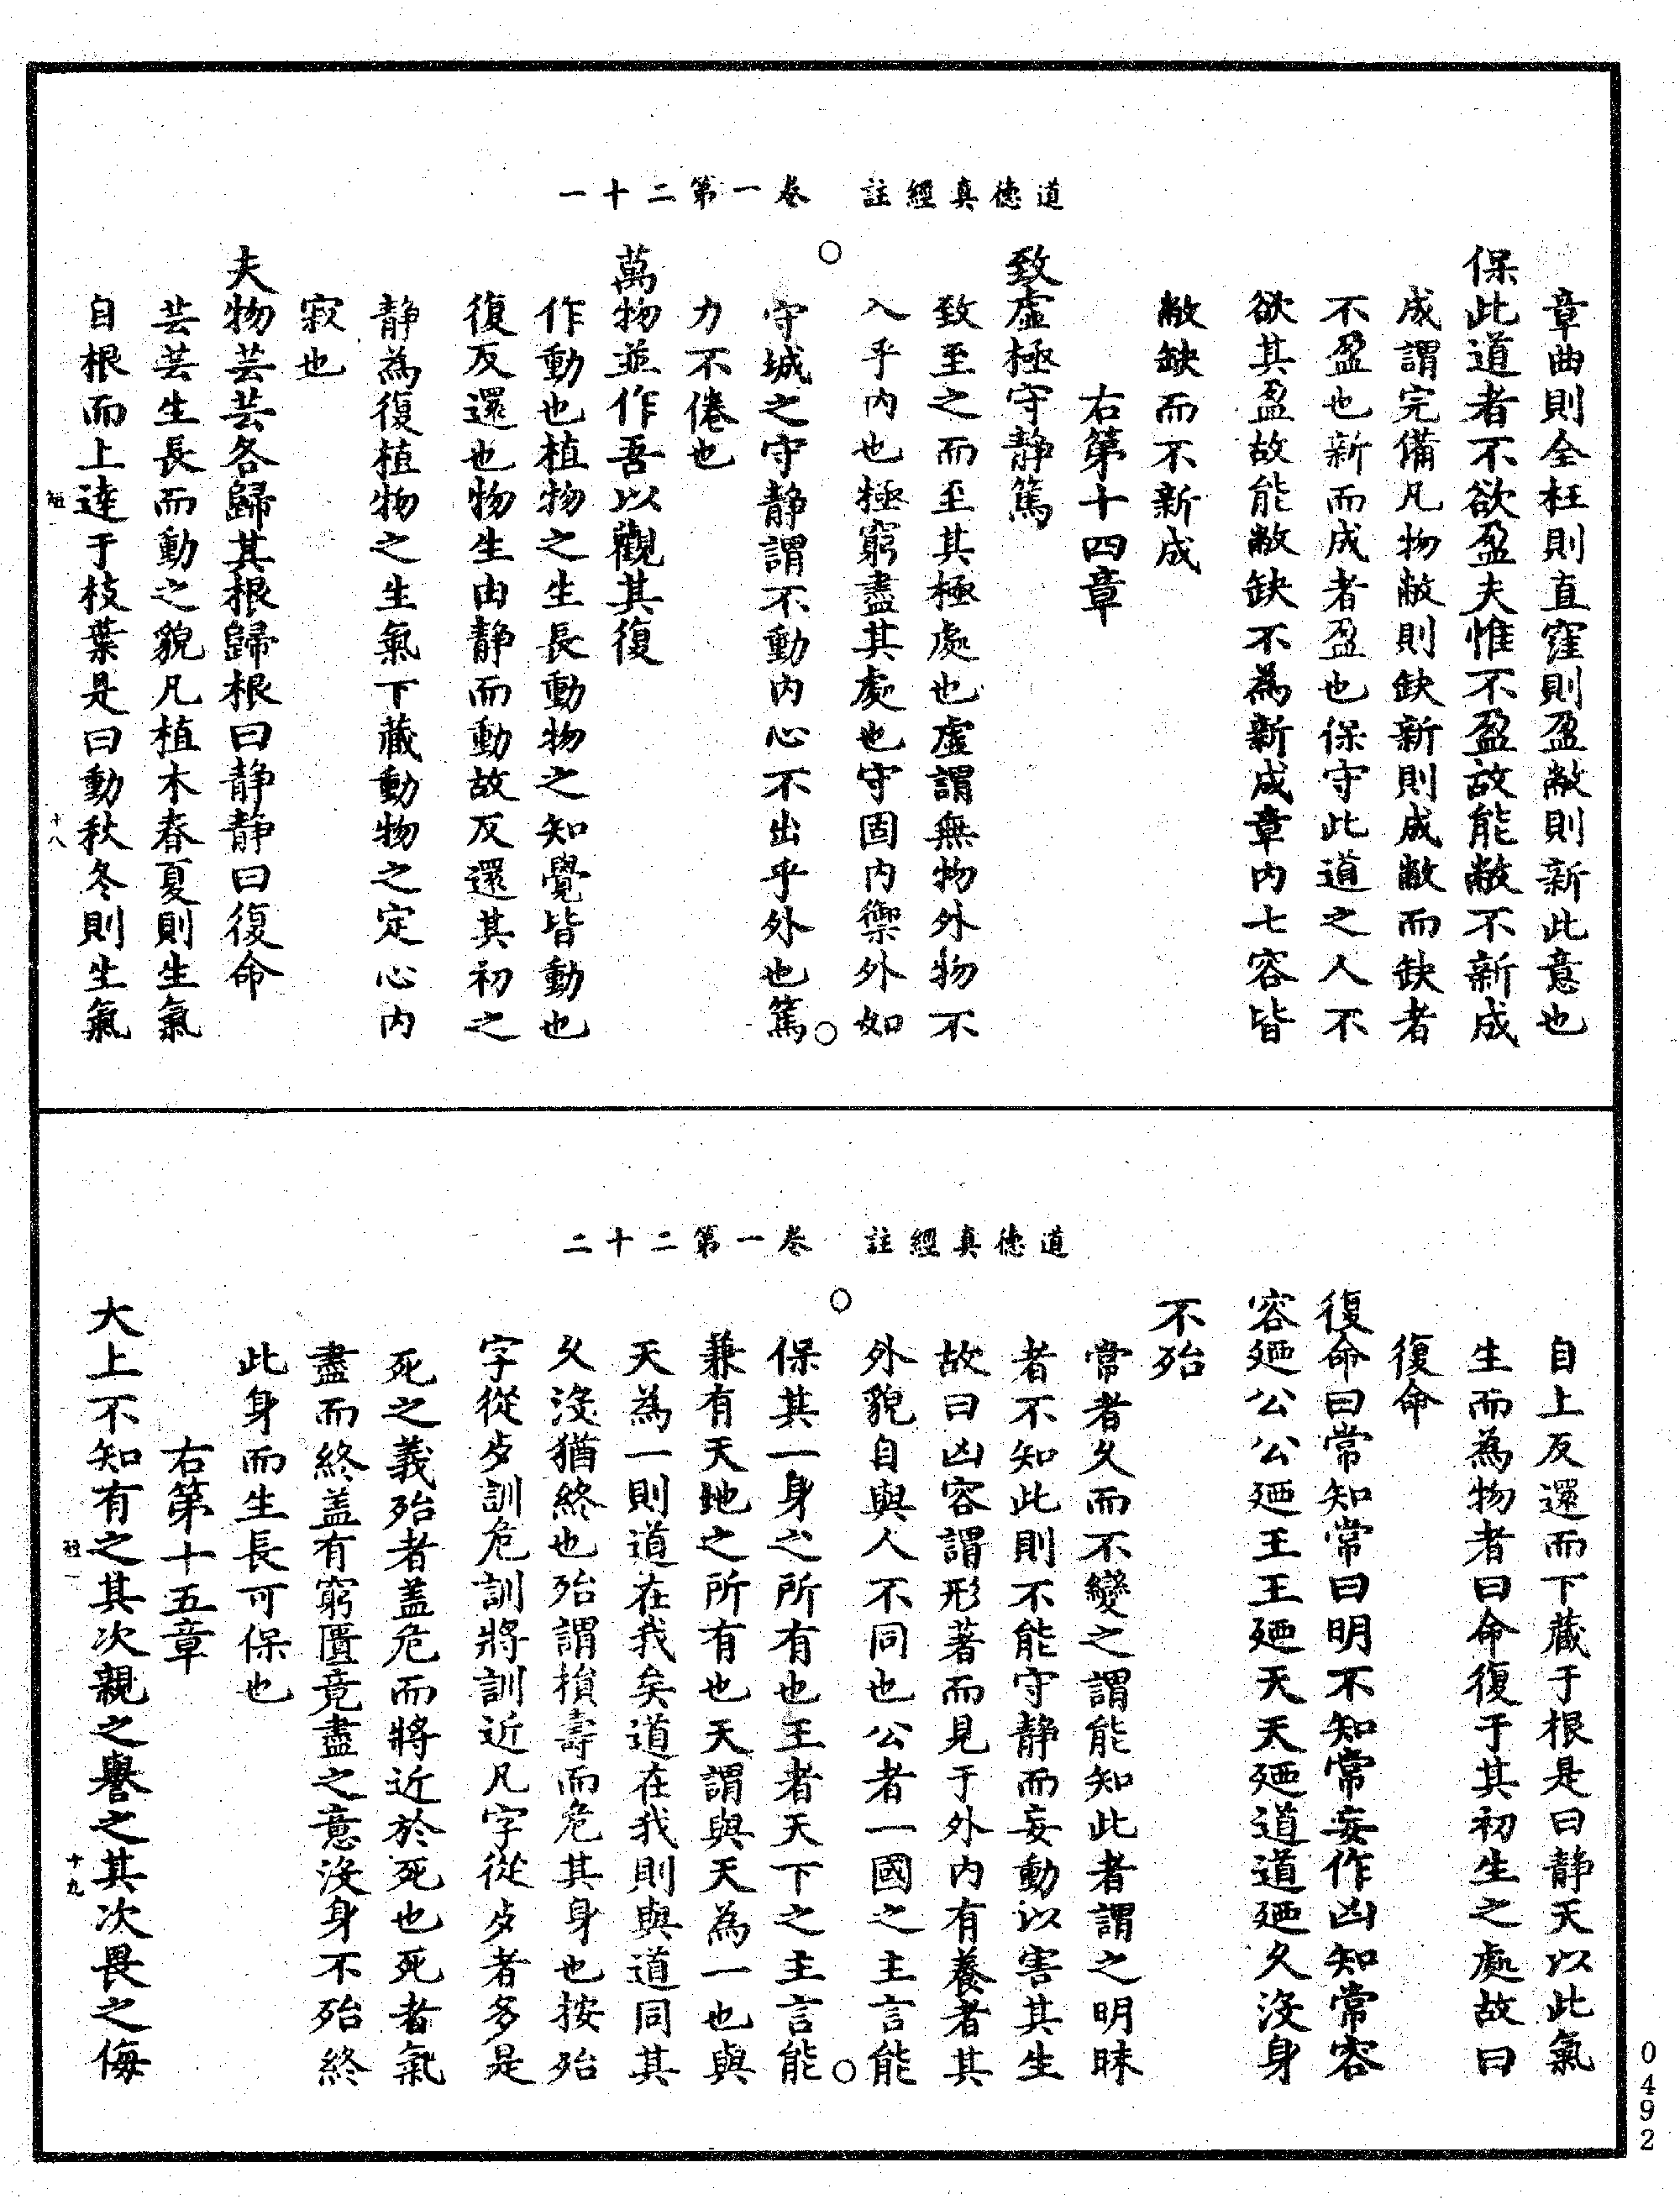 道德真經註　卷一第二十一
章曲則全枉則直窪則盈敝則新此意也
保此道者不欲盈夫惟不盈故能敝不新成
成謂完備凡物敝則缺新則成敝而缺者
不盈也新而成者盈也保守此道之人不
欲其盈故能敝缺不為新成章內七容皆
敝缺而不新成
右第十四章
致虛極守静篤
致至之而至其極處也虛謂無物外物不
入乎內也極窮盡其處也守固內禦外如
○
○
守城之守静謂不動內心不出乎外也篤
力不倦也
萬物並作吾以觀其復
作動也植物之生長動物之知覺皆動也
復反還也物生由静而動故反還其初之
静為復植物之生氣下藏動物之定心內
寂也
夫物芸芸各歸其根歸根曰静静曰復命
芸芸生長而動之貌凡植木春夏則生氣
自根而上達于枝葉是曰動秋冬則生氣
十八
道德真經註　卷一第二十二
自上反還而下藏于根是曰静天以此氣
生而為物者曰命復于其初生之處故曰
復命
復命曰常知常曰明不知常妄作凶知常容
容廼公公廼王王廼天天廼道道廼久沒身
不殆
常者久而不變之謂能知此者謂之明昧
者不知此則不能守静而妄動以害其生
故曰凶容謂形著而見于外內有養者其
外貌自與人不同也公者一國之主言能
○
○
保其一身之所有也王者天下之主言能
兼有天地之所有也天謂與天為一也與
天為一則道在我矣道在我則與道同其
久沒猶終也殆謂損壽而危其身也按殆
字從歺訓危訓將訓近凡字從歺者多是
死之義殆者盖危而將近於死也死者氣
盡而終盖有窮匱竟盡之意沒身不殆終
此身而生長可保也
右第十五章
大上不知有之其次親之譽之其次畏之侮
十九
0492